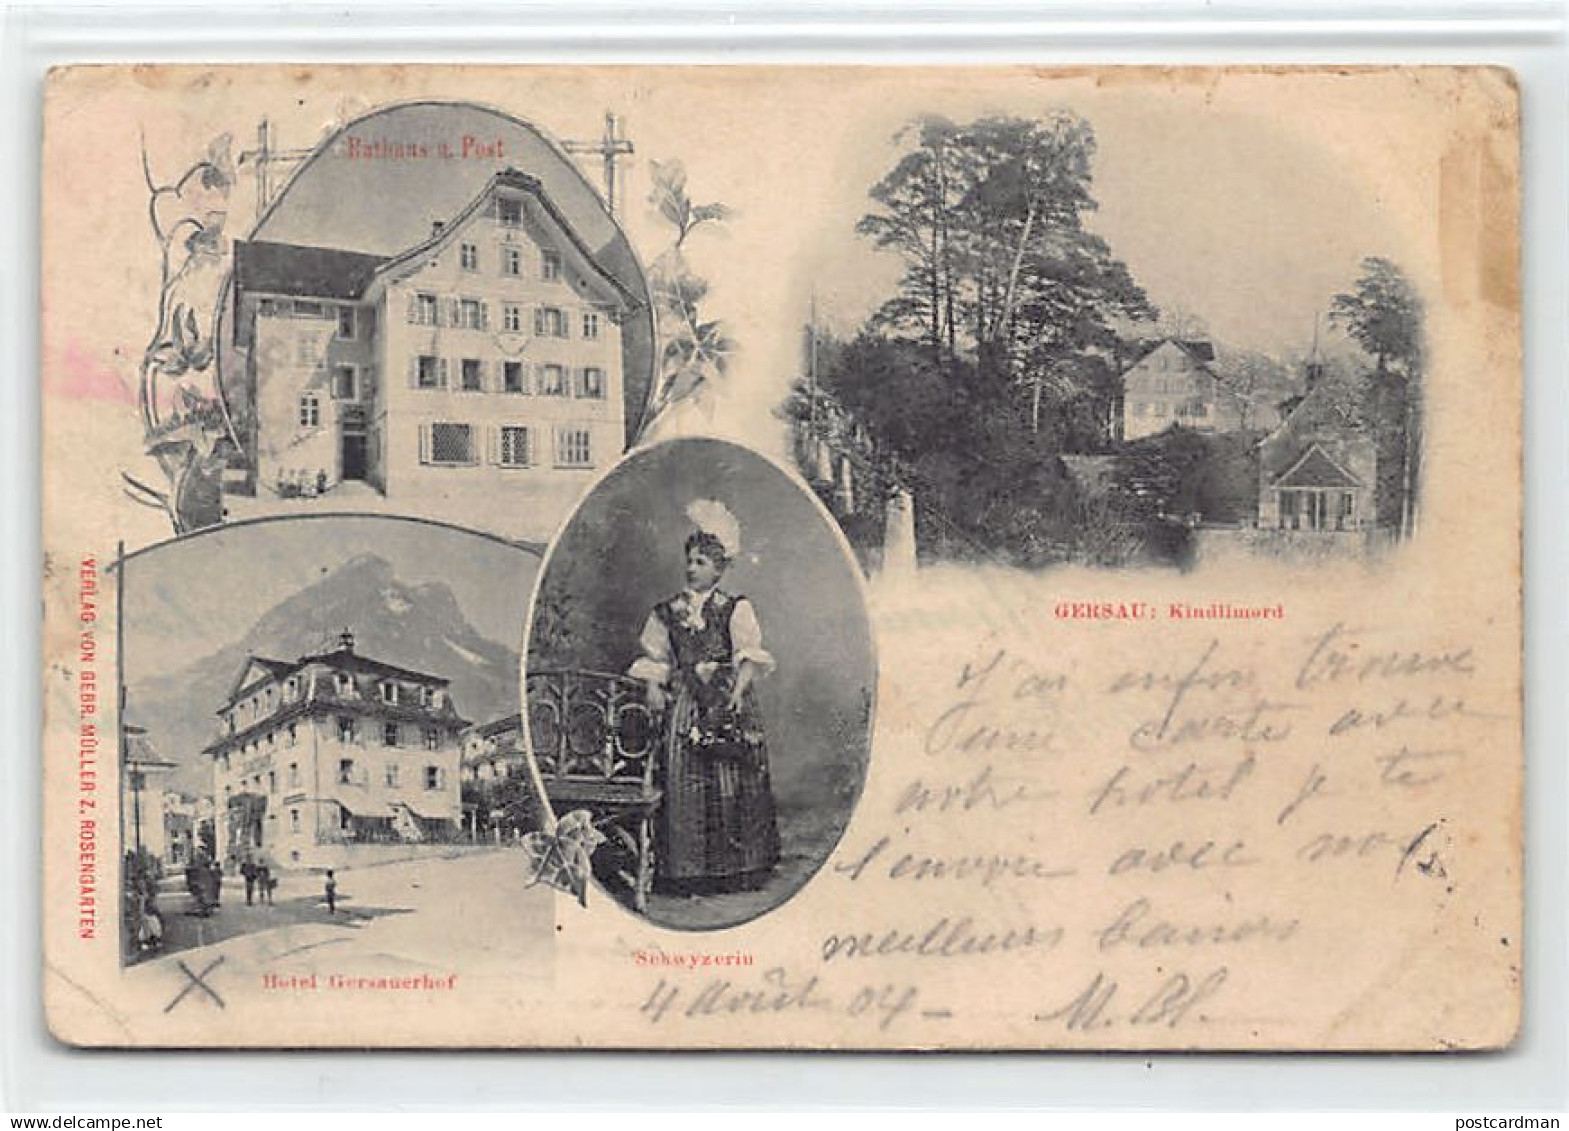 Rathaus u. Post
GERSAU: Kindlimord
VERLAG VON GEBR. MÜLLER Z. ROSENGARTEN
Hotel Gersauerhof
Schwyzerin
J'ai enfin trouvé
une carte avec
notre hotel je te
l'envoie avec nos
meilleurs baisers
4 Août 04 - M. Bl.
www.delcampe.net
postcardman